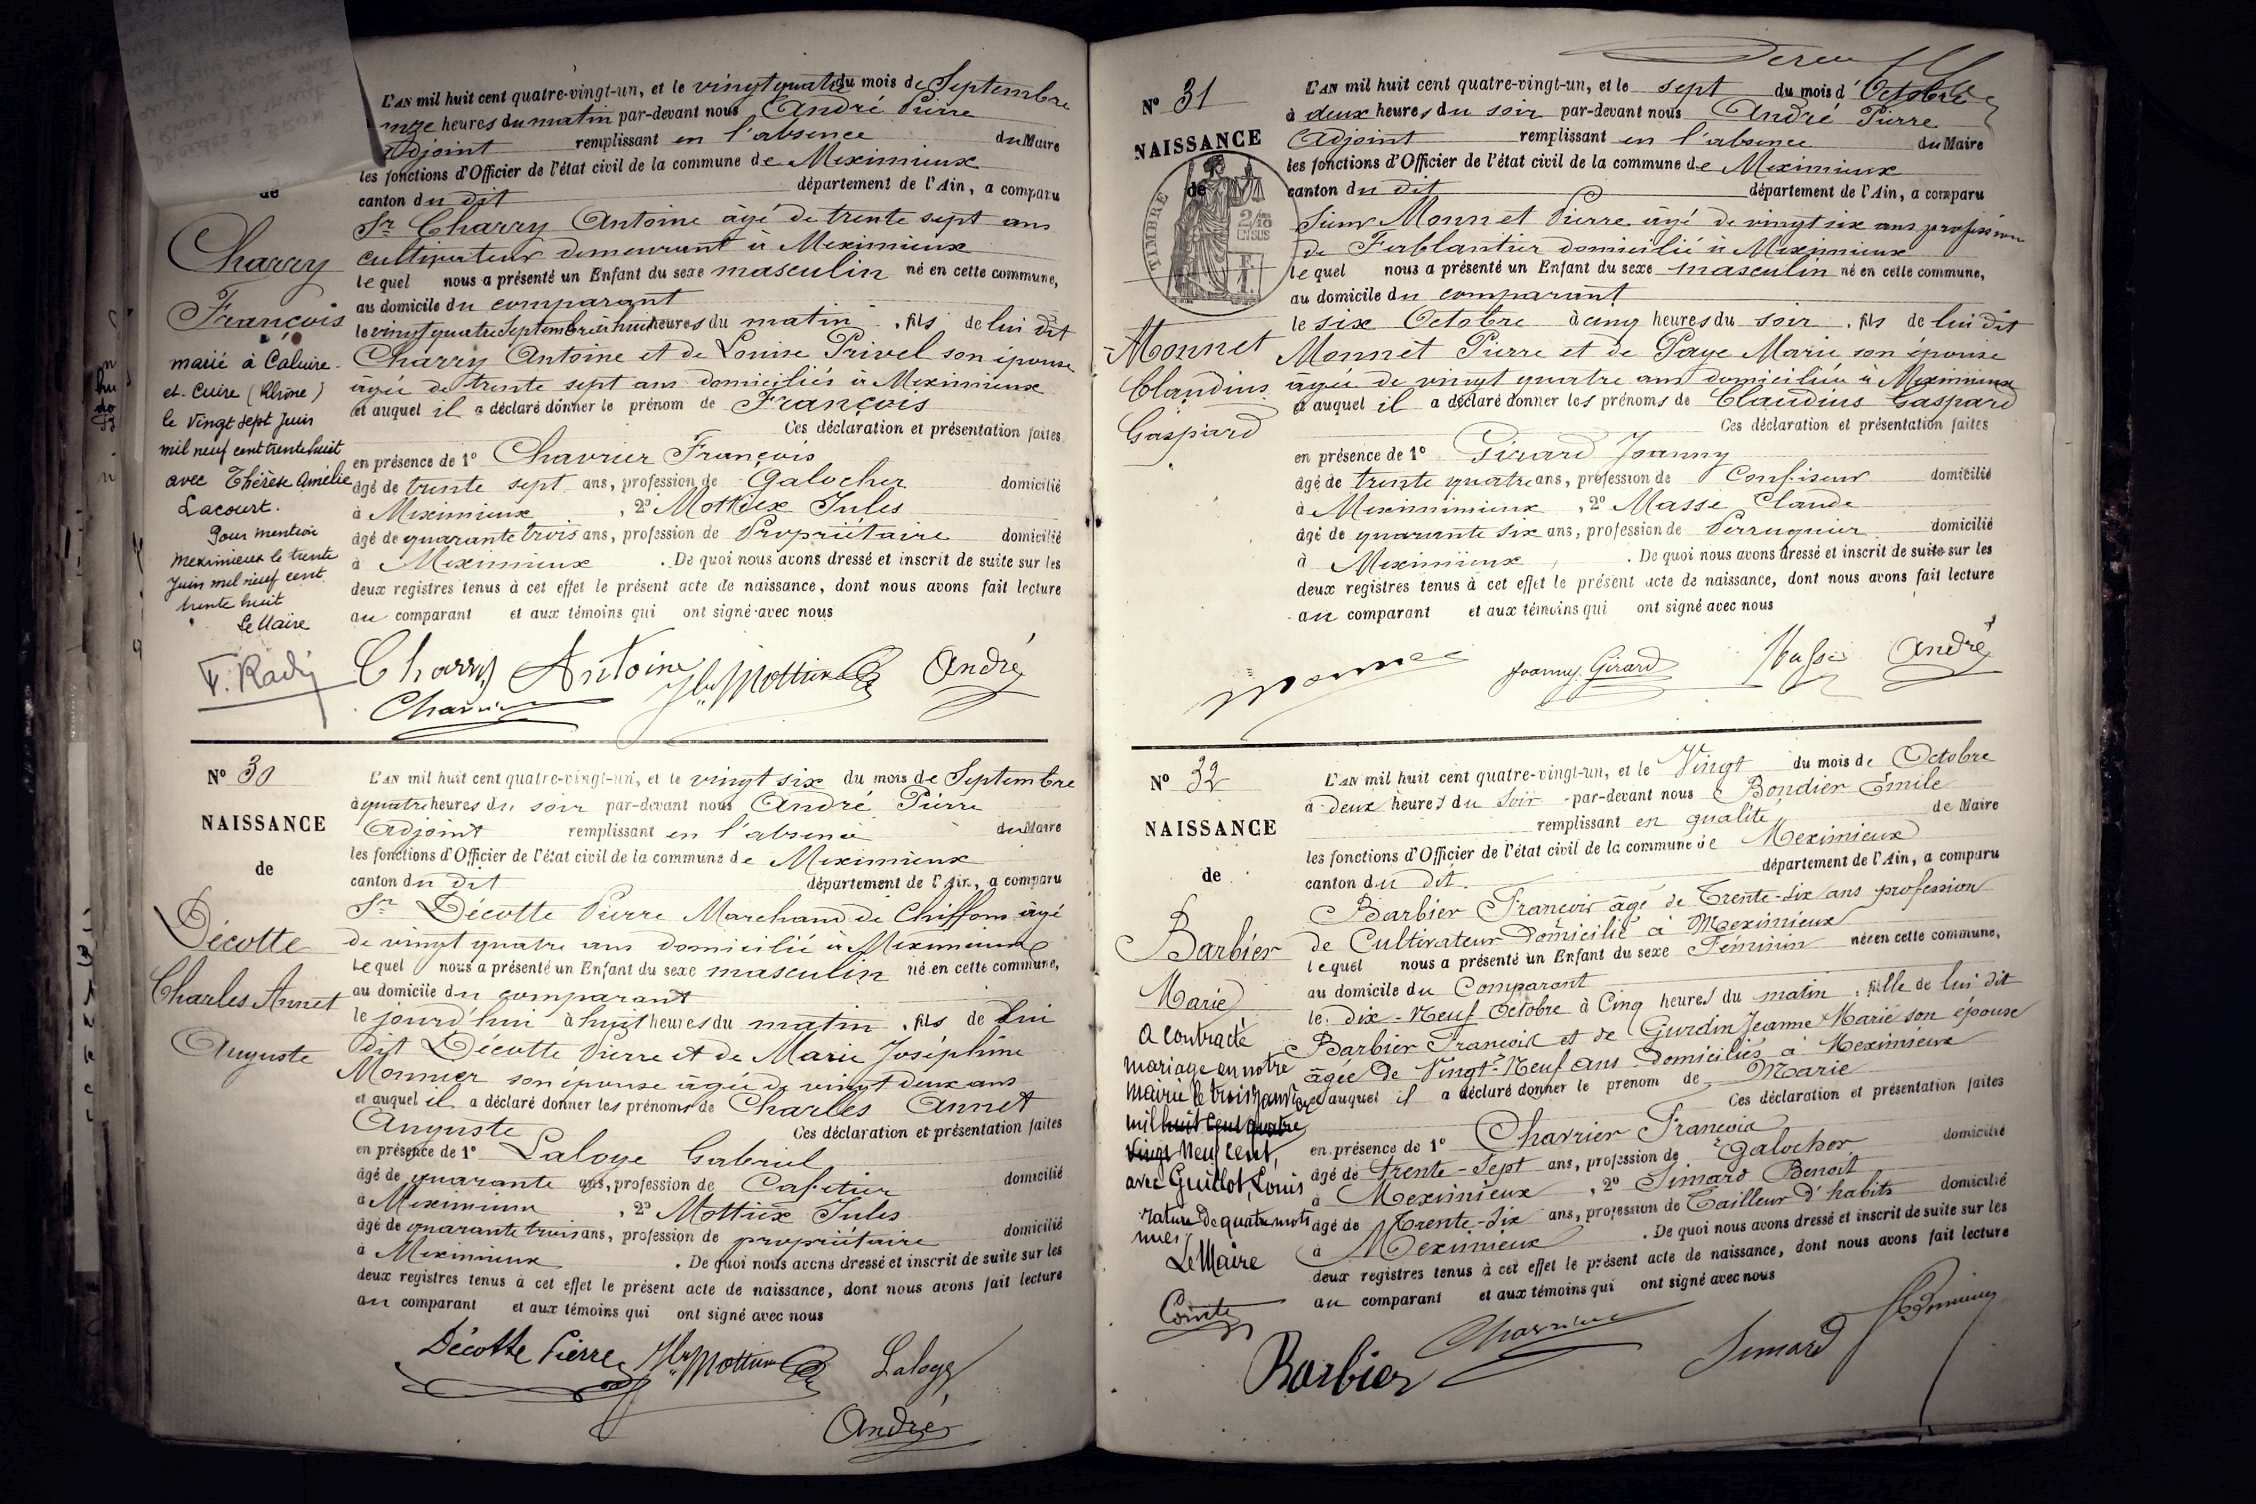 L'AN mil huit cent quatre-vingt-un, et le vingt quatre du mois de Septembre
onze heures du matin par-devant nous André Pierre
Adjoint remplissant en l'absence du Maire
les fonctions d'Officier de l'état civil de la commune de Meximieux
canton du dit département de l'Ain, a comparu
Sr Charry Antoine âgé de trente sept ans
cultivateur demeurant à Meximieux
lequel nous a présenté un Enfant du sexe masculin né en cette commune,
au domicile du comparant
le vingt quatre Septembre à huit heures du matin, fils de lui dit
Charry Antoine et de Louise Privel son épouse
âgée de trente sept ans domiciliés à Meximieux
et auquel il a déclaré donner le prénom de François
Ces déclaration et présentation faites
en présence de 1° Chavrier François
âgé de trente sept ans, profession de Galocher domicilié
à Meximieux, 2° Mottiex Jules
âgé de quarante trois ans, profession de Propriétaire domicilié
à Meximieux. De quoi nous avons dressé et inscrit de suite sur les
deux registres tenus à cet effet le présent acte de naissance, dont nous avons fait lecture
au comparant et aux témoins qui ont signé avec nous
Charry Antoine Jles Mottiex André
Chavrier
de
Charry
François
marié à Caluire
et Cuire (Rhône)
le vingt sept Juin
mil neuf cent trente huit
avec Thérèse Amélie
Lacourt.
Pour mention
Meximieux le trente
Juin mil neuf cent
trente huit
Le Maire
N° 30
NAISSANCE
de
Décotte
Charles Annet
Auguste
L'AN mil huit cent quatre-vingt-un, et le vingt six du mois de Septembre
à quatre heures du soir par-devant nous André Pierre
Adjoint remplissant en l'absence du Maire
les fonctions d'Officier de l'état civil de la commune de Meximieux
canton du dit département de l'Ain, a comparu
Sr Décotte Pierre Marchand de Chiffons âgé
de vingt quatre ans domicilié à Meximieux
lequel nous a présenté un Enfant du sexe masculin né en cette commune,
au domicile du comparant
le jourd'hui à huit heures du matin, fils de lui
dit Décotte Pierre et de Marie Joséphine
Monnier son épouse âgée de vingt deux ans
et auquel il a déclaré donner les prénoms de Charles Annet
Auguste Ces déclaration et présentation faites
en présence de 1° Laloye Gabriel
âgé de quarante ans, profession de Cafetier domicilié
à Meximieux, 2° Mottiex Jules
âgé de quarante trois ans, profession de propriétaire domicilié
à Meximieux. De quoi nous avons dressé et inscrit de suite sur les
deux registres tenus à cet effet le présent acte de naissance, dont nous avons fait lecture
au comparant et aux témoins qui ont signé avec nous
Décotte Pierre Jles Mottiex Laloye
André
N° 31
NAISSANCE
de
TIMBRE
2/10
Monnet
Claudius
Gaspard
L'AN mil huit cent quatre-vingt-un, et le sept du mois d'Octobre
à deux heures du soir par-devant nous André Pierre
Adjoint remplissant en l'absence du Maire
les fonctions d'Officier de l'état civil de la commune de Meximieux
canton du dit département de l'Ain, a comparu
Sieur Monnet Pierre âgé de vingt six ans profession
de Ferblantier domicilié à Meximieux
lequel nous a présenté un Enfant du sexe masculin né en cette commune,
au domicile du comparant
le six Octobre à cinq heures du soir, fils de lui dit
Monnet Pierre et de Paye Marie son épouse
âgée de vingt quatre ans domiciliée à Meximieux
et auquel il a déclaré donner les prénoms de Claudius Gaspard
Ces déclaration et présentation faites
en présence de 1° Girard Joanny
âgé de trente quatre ans, profession de Confiseur domicilié
à Meximimieux, 2° Masse Claude
âgé de quarante six ans, profession de Perruquier domicilié
à Meximieux, . De quoi nous avons dressé et inscrit de suite sur les
deux registres tenus à cet effet le présent acte de naissance, dont nous avons fait lecture
au comparant et aux témoins qui ont signé avec nous
Monnet Joanny Girard Masse André
N° 32
NAISSANCE
de
Barbier
Marie
a contracté
mariage en notre
mairie le trois janvier
mil huit cent quatre
vingt neuf cent,
avec Guillot, Louis
rature de quatre mots
nuls
Le Maire
L'AN mil huit cent quatre-vingt-un, et le Vingt du mois de Octobre
à deux heures du soir par-devant nous Bondier Émile
remplissant en qualité de Maire
les fonctions d'Officier de l'état civil de la commune de Meximieux
canton du dit. département de l'Ain, a comparu
Barbier François âgé de Trente-six ans profession
de Cultivateur Domicilié à Meximieux
lequel nous a présenté un Enfant du sexe Féminin née en cette commune,
au domicile du Comparant
le dix-Neuf Octobre à Cinq heures du matin, fille de lui dit
Barbier François et de Gurdin Jeanne Marie son épouse
âgée de Vingt-Neuf ans Domiciliés à Meximieux
et auquel il a déclaré donner le prénom de Marie
Ces déclaration et présentation faites
en présence de 1° Charrier François
âgé de trente-Sept ans, profession de Galocher domicilié
à Meximieux, 2° Simard Benoit
âgé de Trente-Six ans, profession de Tailleur d'habits domicilié
à Meximieux. De quoi nous avons dressé et inscrit de suite sur les
deux registres tenus à cet effet le présent acte de naissance, dont nous avons fait lecture
au comparant et aux témoins qui ont signé avec nous
Barbier Charrier Simard